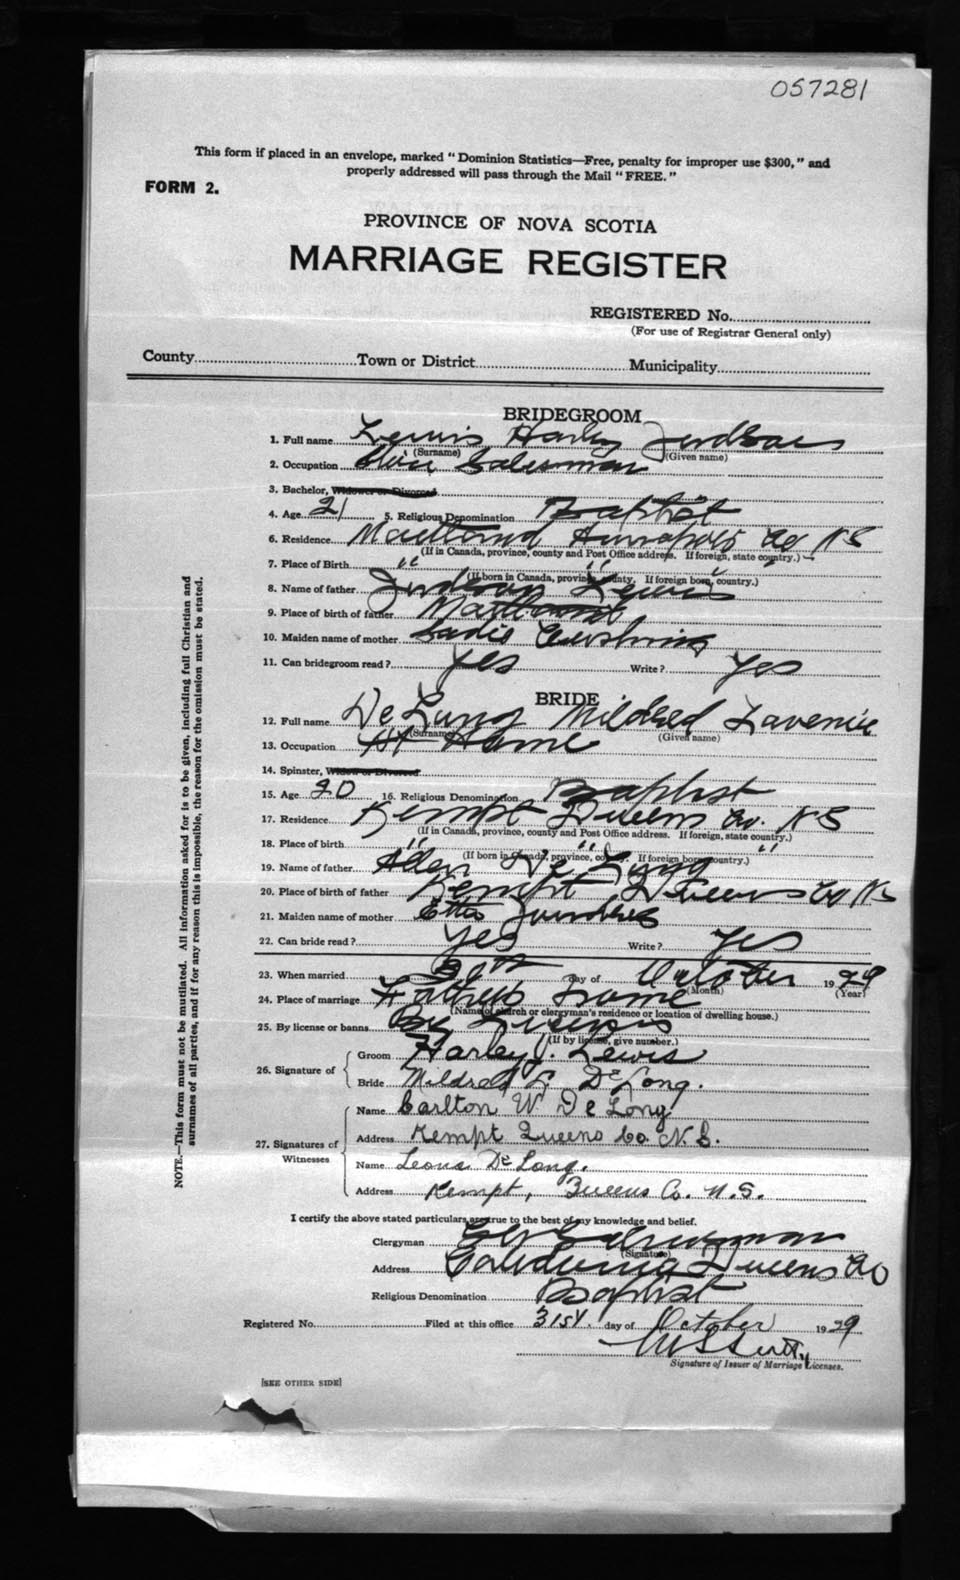 057281
This form if placed in an envelope, marked "Dominion Statistics—Free, penalty for improper use $300," and
properly addressed will pass through the Mail "FREE."
FORM 2.
PROVINCE OF NOVA SCOTIA
MARRIAGE REGISTER
REGISTERED No.
(For use of Registrar General only)
County Town or District Municipality
BRIDEGROOM
1. Full name Lewis Harley Judson
(Surname) (Given name)
2. Occupation Salesman
3. Bachelor, Widower or Divorced
4. Age 21 5. Religious Denomination Baptist
6. Residence Maitland Annapolis Co NS
(If in Canada, province, county and Post Office address. If foreign, state country.)
7. Place of Birth " "
(If born in Canada, province, county. If foreign born, country.)
8. Name of father Judson Lewis
9. Place of birth of father Maitland
10. Maiden name of mother Sadie Cushing
11. Can bridegroom read? Yes Write? Yes
BRIDE
12. Full name De Long Mildred Lavenie
(Surname) (Given name)
13. Occupation At Home
14. Spinster, Widow or Divorced
15. Age 20 16. Religious Denomination Baptist
17. Residence Kempt Queens Co. NS
(If in Canada, province, county and Post Office address. If foreign, state country.)
18. Place of Birth " " "
(If born in Canada, province, county. If foreign born country.)
19. Name of father De Long
20. Place of birth of father Kempt Queens Co NS
21. Maiden name of mother Etta
22. Can bride read? Yes Write? Yes
23. When married 30th day of October 1929
(Month) (Year)
24. Place of marriage Home
(Name of church or clergyman's residence or location of dwelling house.)
25. By license or banns By License
(If by license, give number.)
26. Signature of
Groom Harley J. Lewis
Bride Mildred L. De Long.
27. Signatures of
Witnesses
Name Carlton W. De Long
Address Kempt Queens Co. N.S.
Name Leona De Long.
Address Kempt, Queens Co. N.S.
I certify the above stated particulars are true to the best of my knowledge and belief.
Clergyman
(Signature)
Address Caledonia Queens Co
Religious Denomination Baptist
Registered No. Filed at this office 31st. day of October 1929
Signature of Issuer of Marriage Licenses.
[SEE OTHER SIDE]
NOTE.—This form must not be mutilated. All information asked for is to be given, including full Christian and
surnames of all parties, and if for any reason this is impossible, the reason for the omission must be stated.